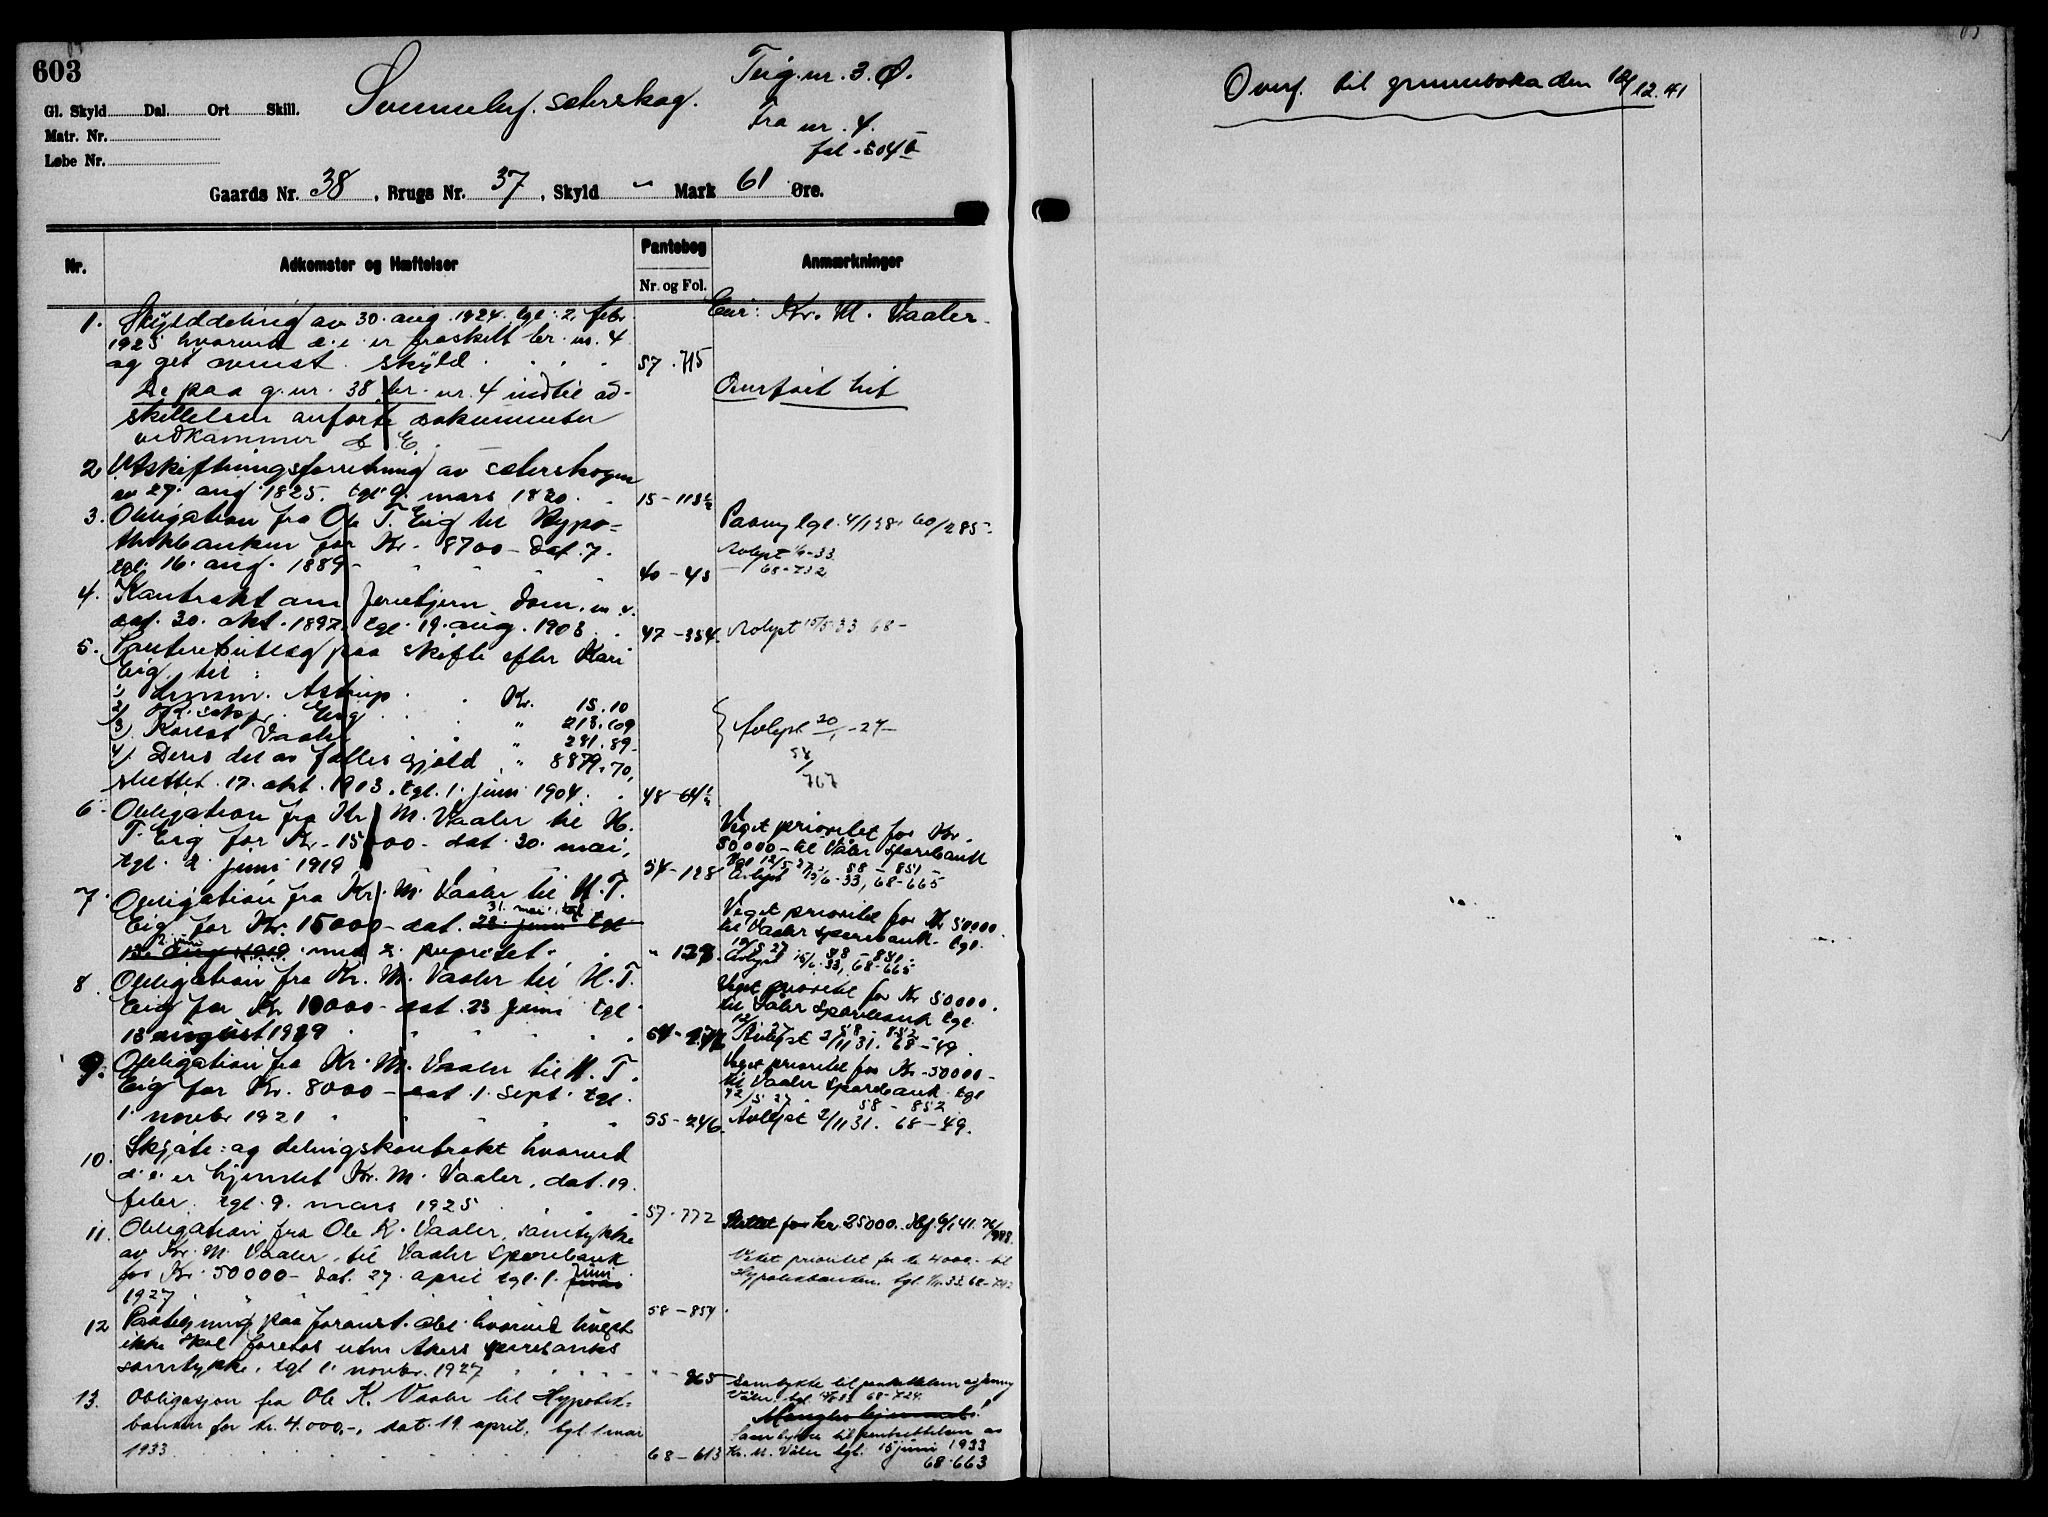 603
Teig. nr. 3. Ø.
sæterskog.
Fra nr. 4.
fol. 504 b
Gl. Skyld Dal. Ort Skill.
Matr. Nr.
Løbe Nr.
Gaards Nr. 38, Brugs Nr. 37, Skyld " Mark 61 Øre.
Nr. Adkomster og Hæftelser Pantebog Anmærkninger
Nr. og Fol.
1. Skylddeling av 30. aug. 1924. tgl. 2. febr. Eier: Kr. M. Vaaler.
1925 hvorved d. e. er fraskilt br. nr. 4
og git ovenst. skyld 57. 715
De paa g. nr. 38 br. nr. 4 indtil ad- Overført hit
skillelsen anførte dokumenter
vedkommer d. E.
2 Utskiftningsforretning av sæterskogen
av 27. aug. 1825. tgl. 9. mars 1820. 15-113½
3. Obligation fra Ole T. Eig til Hypo= Paany tgl. 4/1 38. 60/285.
thekbanken for Kr. 8700- Dat. 7.
tgl. 16. aug. 1889- 40-43 68-732
4. Kontrakt om fornebjern. Dom. m. v.
dat. 30. okt. 1897. tgl. 19. aug. 1903. 47-354. Avlyst 15/5 33 68-
5. Panteretutlæg paa skifte efter Kari
Eig. til:
1) Astrup. Kr. 15.10
2) Eig " 213.69
3) Vaaler " 291.89- Avlyst 20/1-27-
4) Deres del av fælles gjæld " 8879.70, 58/767
sluttet 17. okt. 1903. tgl. 1. juni 1904. 48-64½
6. Obligation fra Kr. M. Vaaler til H. Veget prioritet for Kr.
T. Eig for Kr. 15000- dat. 30. mai, 50000- til Våler Sparebank
tgl. 2 juni 1919 54-128 tgl 12/5 27 58-851
Avlyst 15/6-33, 68-665
7. Obligation fra Kr. M. Vaaler til H. T. Veget prioritet for Kr 50000.
Eig for Kr. 15000- dat. 31. mai, tgl. til Vaaler Sparebank. tgl.
2. juni 1919. med 2. prioritet. " 129. 12/5 27 58-851.
Avlyst 15/6. 33, 68-665
8. Obligation fra Kr. M. Vaaler til H. T. Veget prioritet for Kr 50000.
Eig for Kr 10000- dat. 23 juni tgl til Våler Sparebank tgl.
13 august 1919 12/5 27 58-852
Avlyst 2/11 31. 68-49.
9. Obligation fra Kr. M. Vaaler til H. T. Veget prioritet for Kr. 50000-
Eig for Kr. 8000- dat. 1. sept. tgl. til Vaaler Sparebank tgl
1. novbr 1921 12/5 27 58-852
55-246. Avlyst 2/11 31. 68-49.
10. Skjøte: og delingskontrakt hvorved
d. e. er hjemlet Kr. M. Vaaler, dat. 19.
febr. tgl. 9. mars 1925 57-772
11. Obligation fra Ole K. Vaaler, samtykke Slettet for kr. 25000.
av Kr. M. Vaaler, til Vaaler Sparebank Veket prioritet for kr 4000.- til
for Kr. 50000- dat. 27. april tgl. 1. juni Hypotekbanken. tgl.
1927 58-854.
12 Paategning paa foranst. obl. hvorved
ikke skal foretas uten Akers sparebanks
samtykke, tgl 1. novbr. 1927 " -965 samtykke til
13. Obligasjon fra Ole K. Vaaler til Hypotek= Våler, tgl. 68-724.
banken for kr. 4.000,-, dat. 19 april, tgl. 1 mai Mangler hjemmel!
1933 68-613 Samtykke til pantsettelsen av
Kr. M. Våler tgl. 15 juni 1933
68-663
Overf. til grunnboka den 12.41